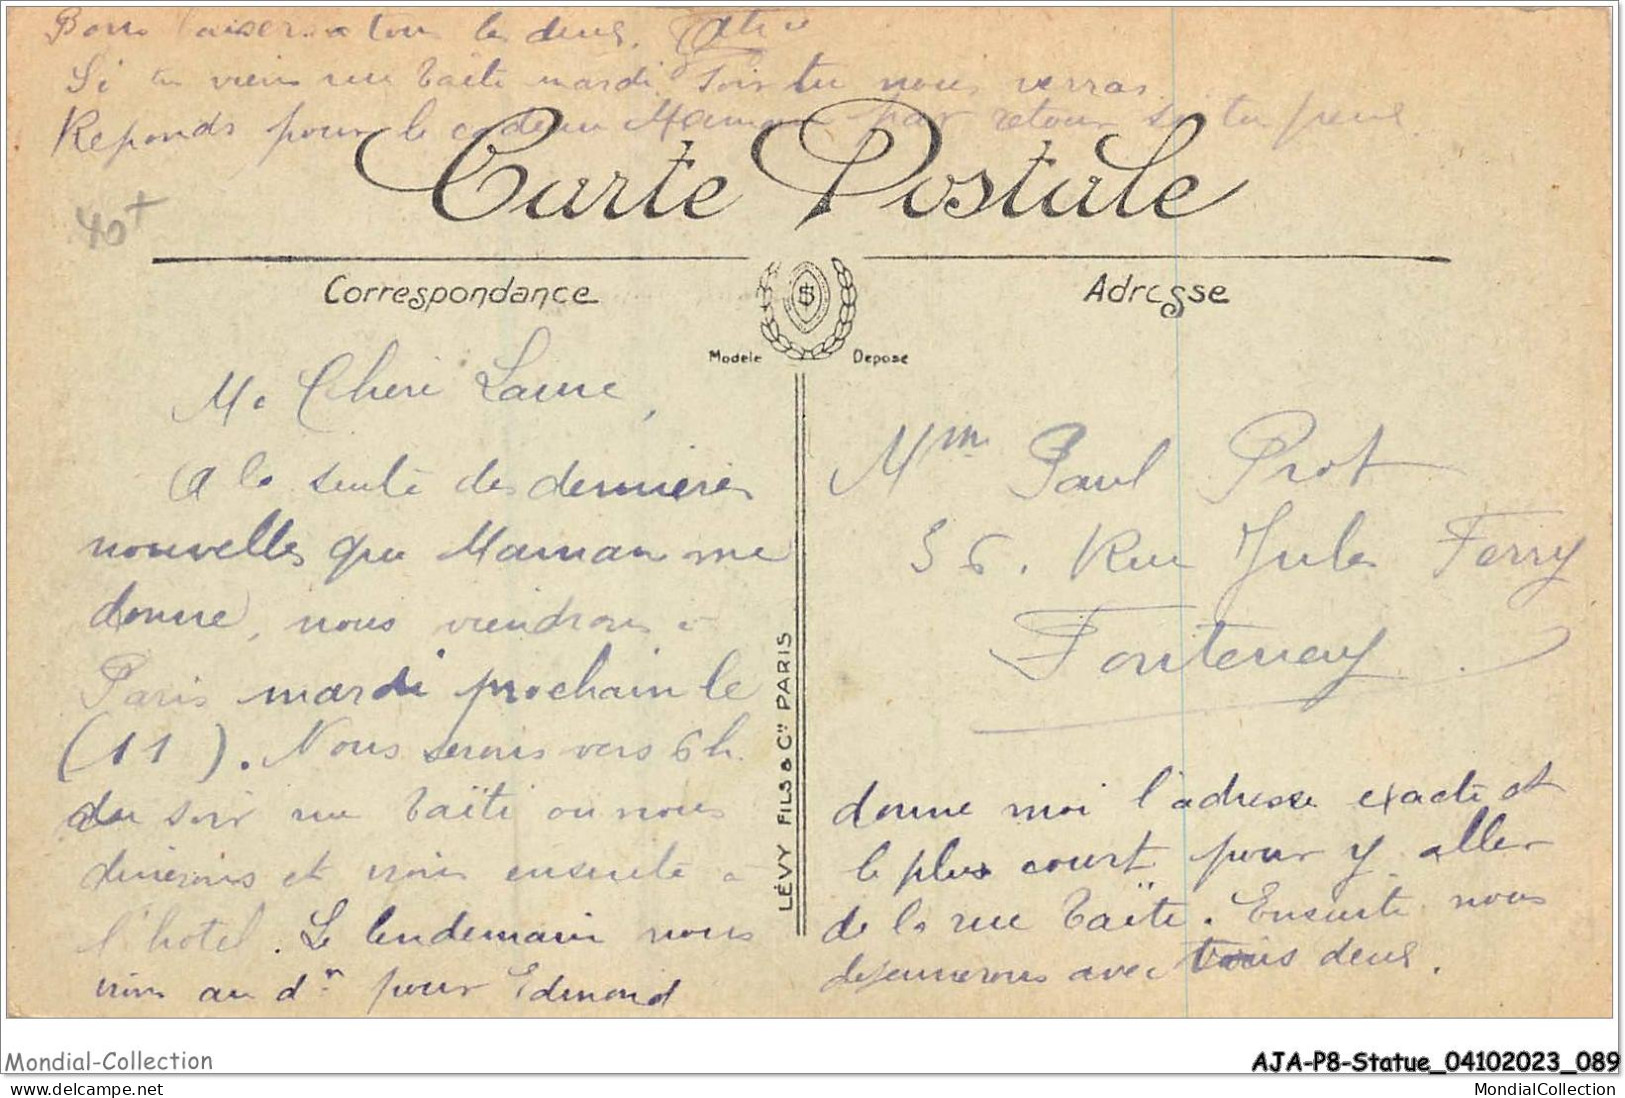 Bons baisers a tous les deux.
Si tu viens rue Taïti mardi soir tu nous verras
Reponds pour le cadeau Maman par retour si tu peux.
40+
Carte Postale
Correspondance
Adresse
Modèle Déposé
Ma Cheri Laure,
A la suite des dernières
nouvelles que Maman me
donne, nous viendrons à
Paris mardi prochain le
(11). Nous serons vers 6h.
du soir rue Taïti ou nous
dinerons et irons ensuite à
l'hotel. Le lendemain nous
irons au dr pour Edmond
LÉVY FILS & Cie PARIS
Mme Paul Prot
36. Rue Jules Ferry
Fontenay
donne moi l'adresse exacte et
le plus court pour y aller
de la rue Taïti. Ensuite nous
dejeunerons avec vous deux.
Mondial-Collection
AJA-P8-Statue_04102023_089
fr.delcampe.net
MondialCollection